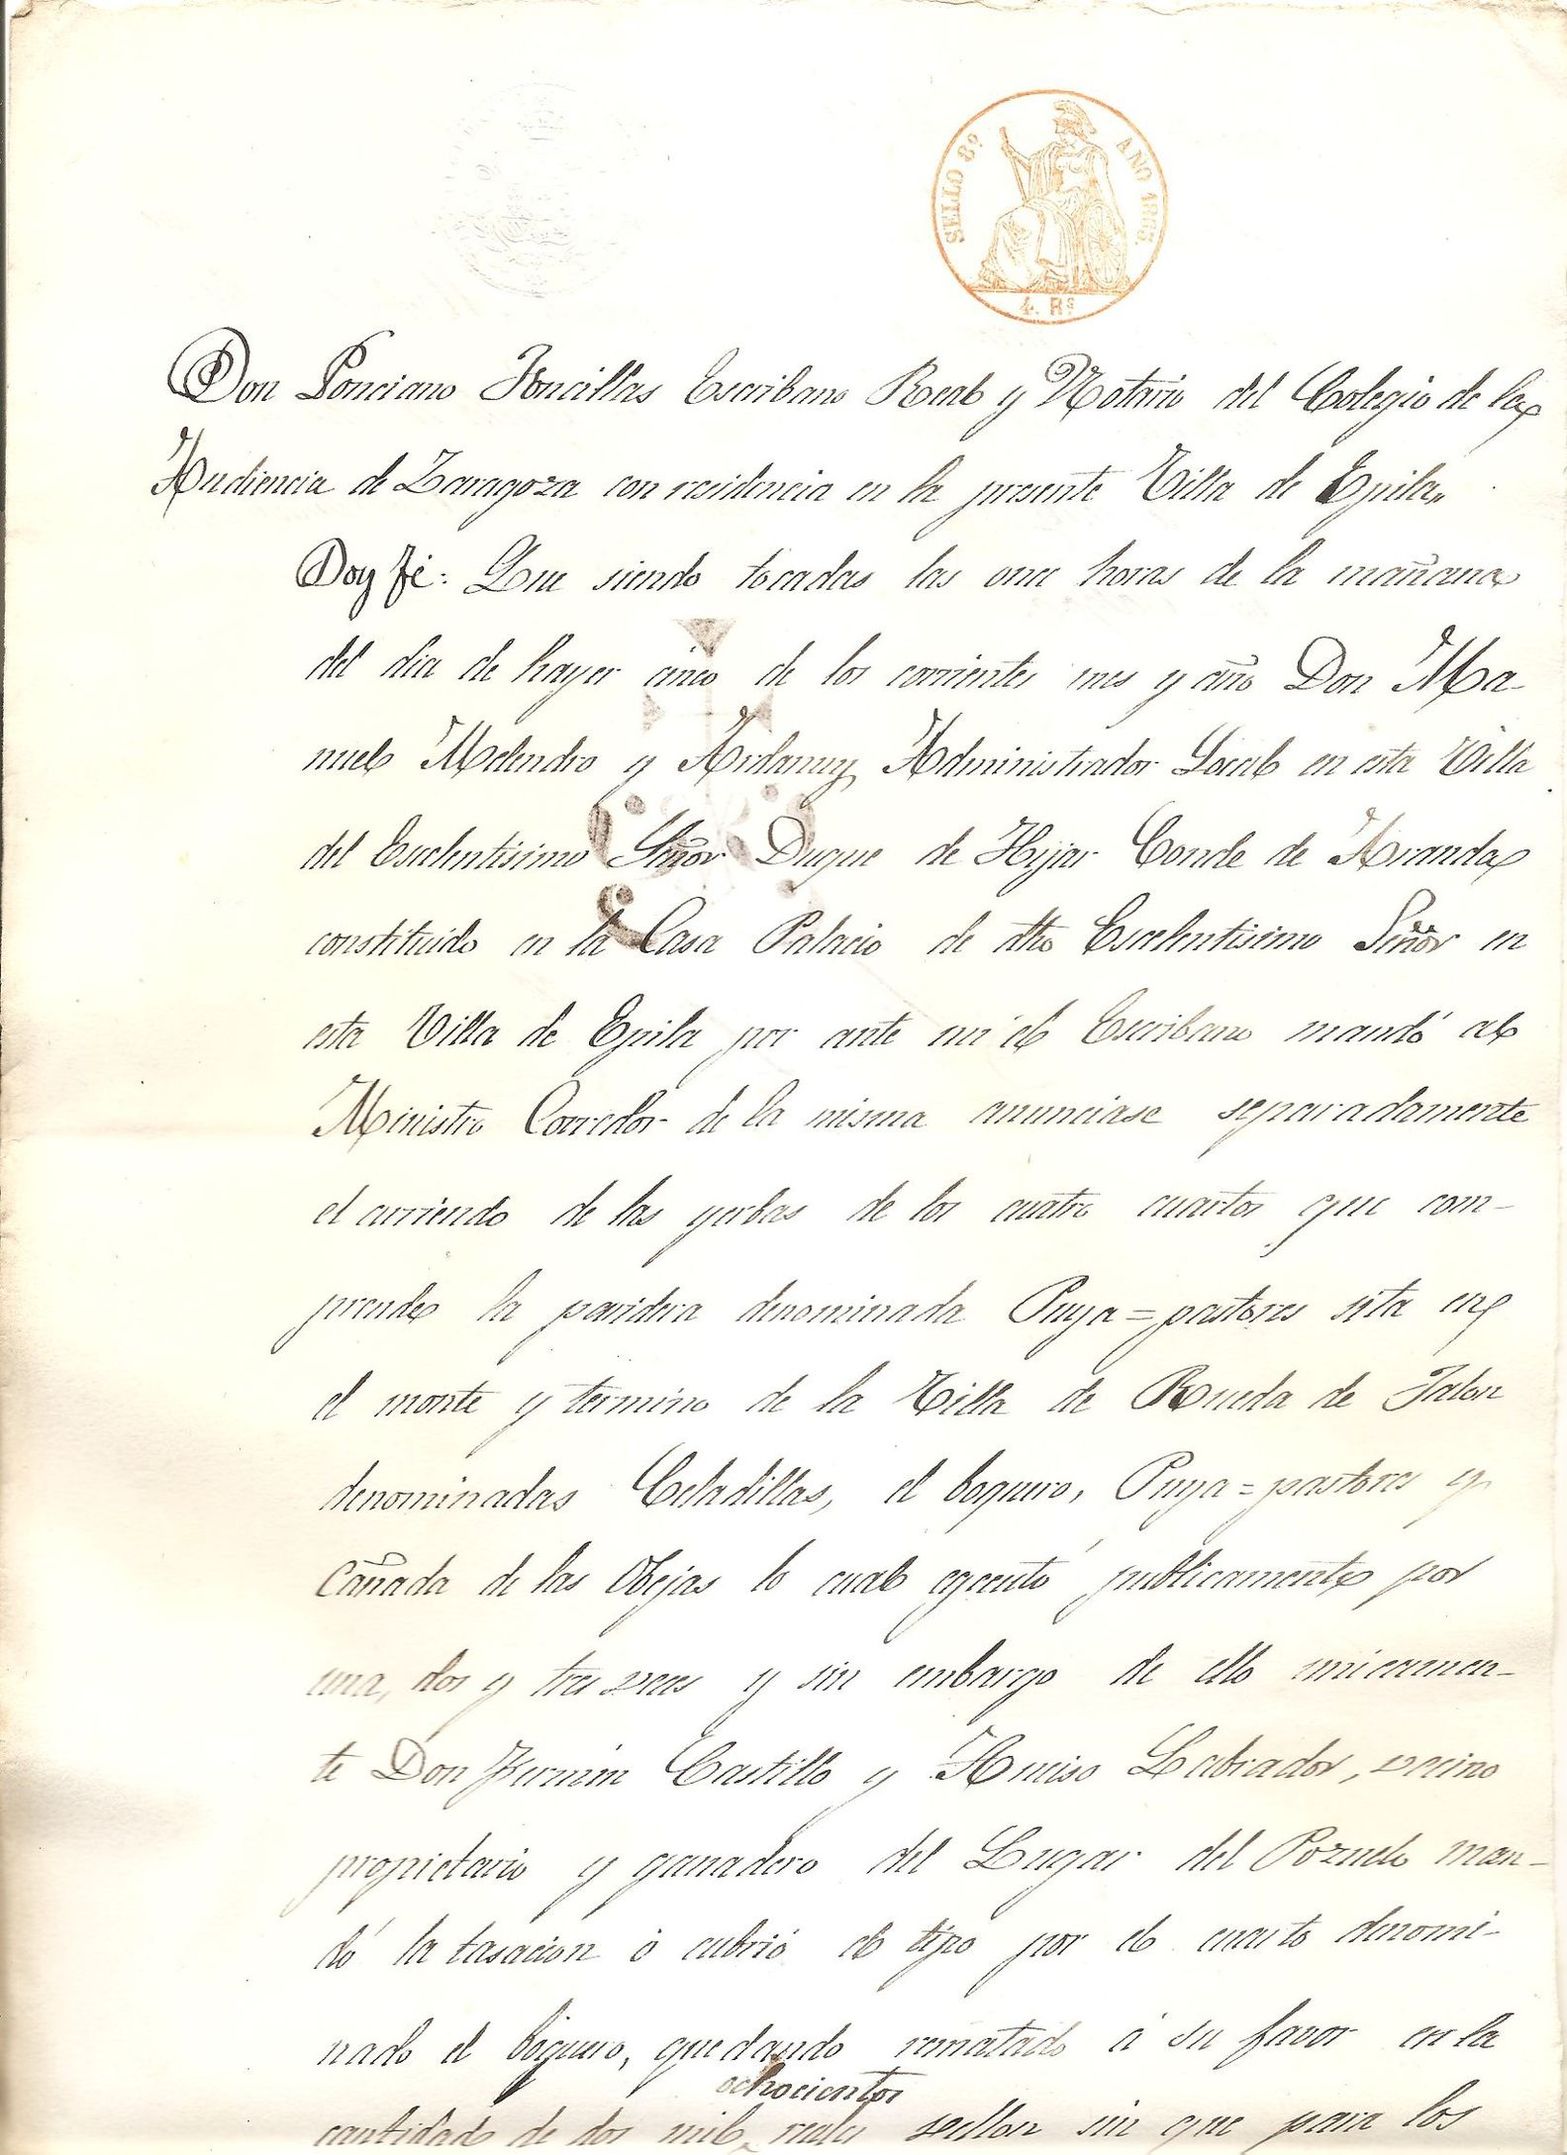 SELLO 8º AÑO 1865.
4. Rs
Don Ponciano Foncillas Escribano Real y Notario del Colegio de la
Audiencia de Zaragoza con residencia en la presente Villa de Epila„
Doy fé: Que siendo tocadas las once horas de la mañana
del dia de hayer cinco de los corrientes mes y año Don Ma-
nuel Melendro y Ardanuy Administrador Local en esta Villa
del Escelentisimo Señor Duque de Hijar Conde de Aranda
constituido en la Casa Palacio de dho Escelentisimo Señor en
esta Villa de Epila por ante mi el Escribano mandó al
Ministro Corredor de la misma anunciase separadamente
el arriendo de las yerbas de los cuatro cuartos que com-
prende la paridera denominada Puya=pastores sita en
el monte y termino de la Villa de Rueda de Jalon
denominadas Celadillas, el boquero, Puya=pastores y
Cañada de las Obejas lo cual egecutó publicamente por
una, dos y tres veces y sin embargo de ello unicamen-
te Don Fermin Castillo y Labrador, vecino
propietario y ganadero del Lugar del Pozuelo man-
dó la tasacion ó cubrió el tipo por el cuarto denomi-
nado el boquero, quedando rematado á su favor en la
ochocientos
cantidad de dos mil reales vellon sin que para los